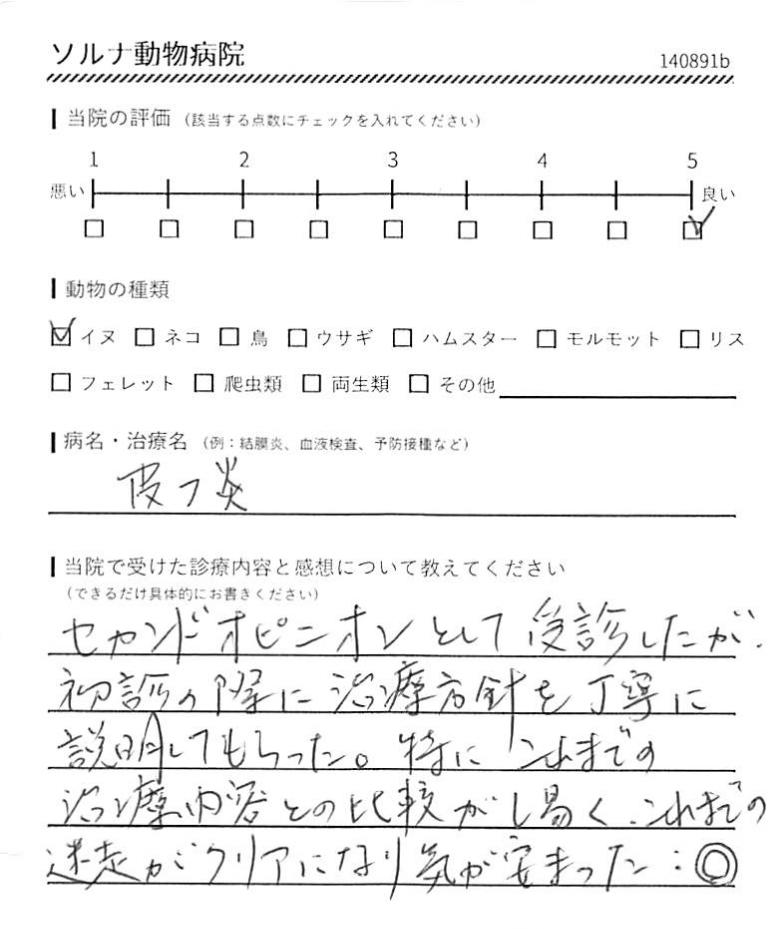 ソルナ動物病院
140891b
当院の評価 (該当する点数にチェックを入れてください)
1 2 3 4 5
悪い 良い
動物の種類
イヌ ネコ 鳥 ウサギ ハムスター モルモット リス
フェレット 爬虫類 両生類 その他
病名・治療名 (例:結膜炎、血液検査、予防接種など)
皮フ炎
当院で受けた診療内容と感想について教えてください
(できるだけ具体的にお書きください)
セカンドオピニオンとして受診したが、
初診の際に治療方針を丁寧に
説明してもらった。特にこれまでの
治療内容との比較がし易く、これまでの
迷走がクリアになり気が安まった:◎